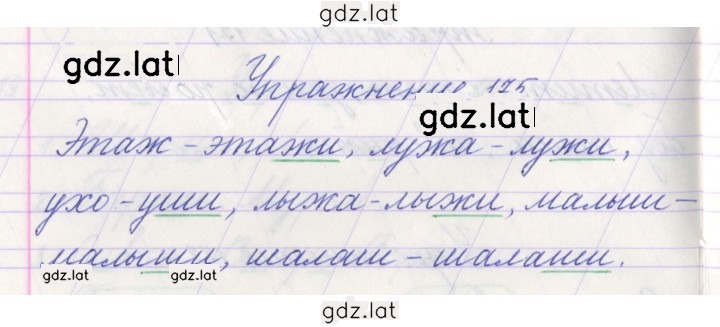 gdz.lat
gdz.lat
Упражнение 175
gdz.lat
Этаж - этажи, лужа - лужи,
ухо - уши, лыжа - лыжи, малыш -
малыши, шалаш - шалаши.
gdz.lat gdz.lat
gdz.lat